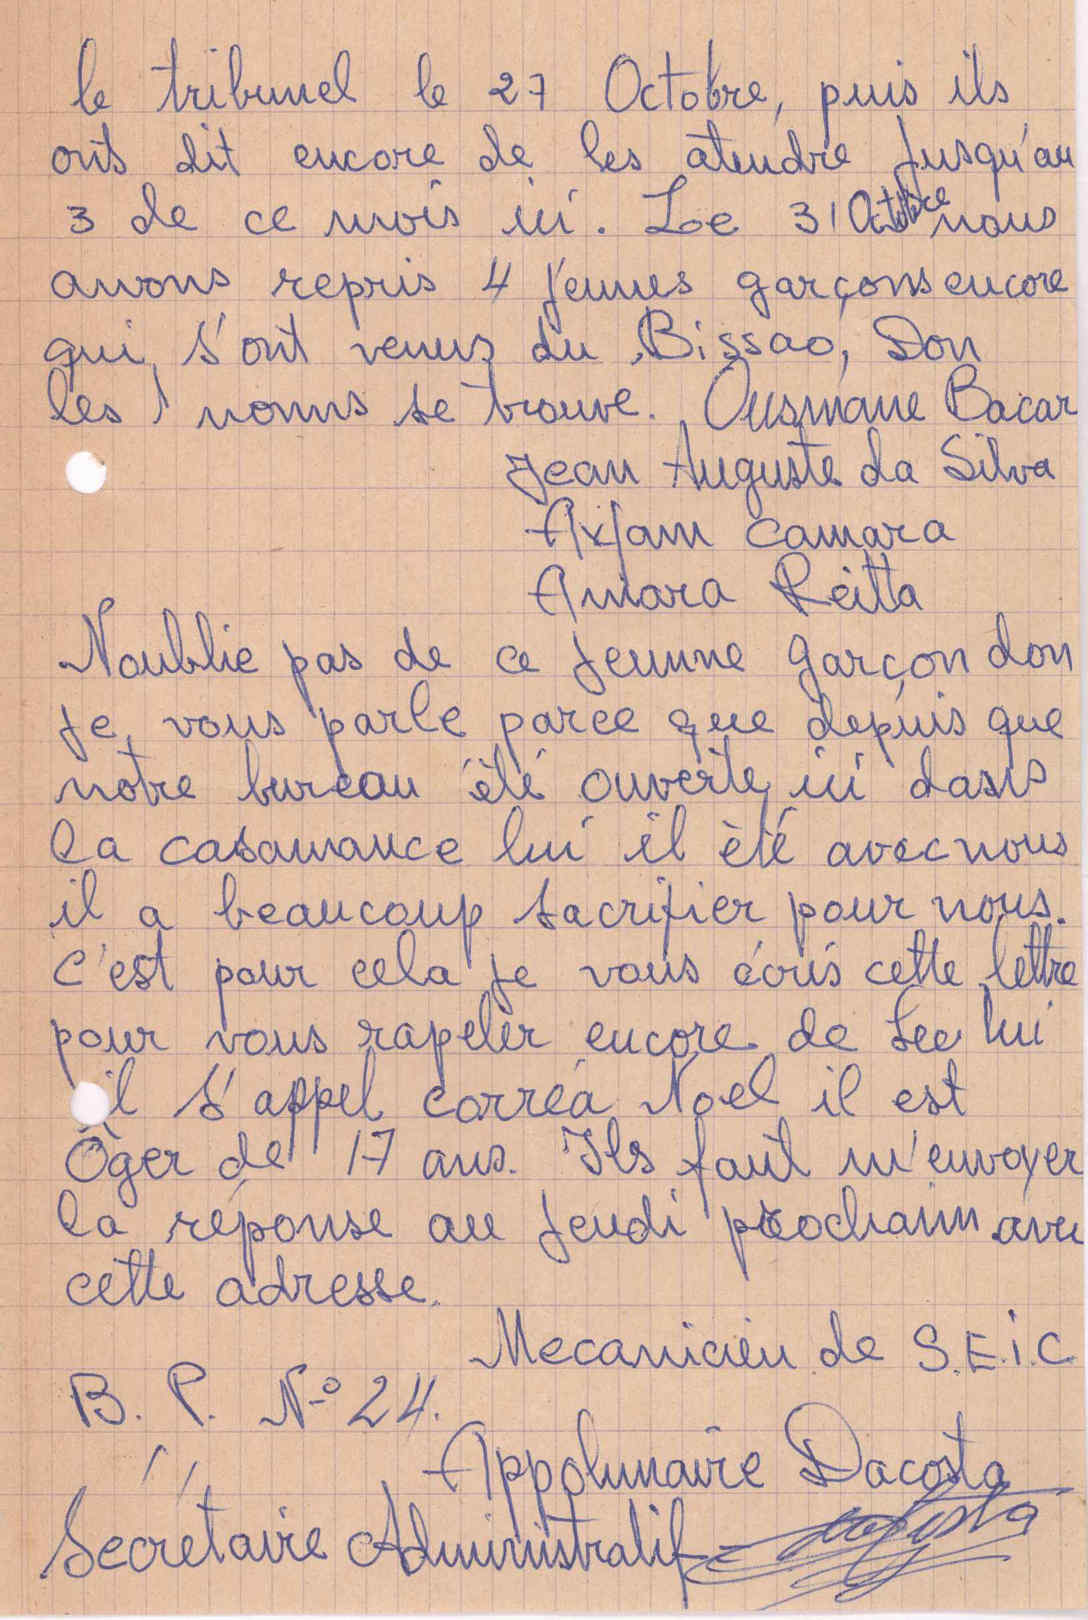 le tribunel le 27 Octobre, puis ils
onts dit encore de les atendre jusqu'au
3 de ce mois ici. Le 31 Octobre nous
avons repris 4 jeunes garçons encore
qui s'ont venus du Bissao, Don
les nonns se trouve. Ousmane Bacar
Jean Auguste da Silva
Axfam camara
Amara Keitta
Noublie pas de ce jeunne garçon don
je vous parle parce que depuis que
notre bureau été ouverte ici dans
la casamance lui il été avec nous
il a beaucoup sacrifier pour nous.
C'est pour cela je vous écris cette lettre
pour vous rapeler encore de lui
il s'appel corréa Noel il est
Ôger de 17 ans. Ils faut m'envoyer
la réponse au jeudi prochain avec
cette adresse.
Mecanicien de S.E.i.C
B. P. N° 24.
Appolunaire Dacosta
Secrétaire Administratif